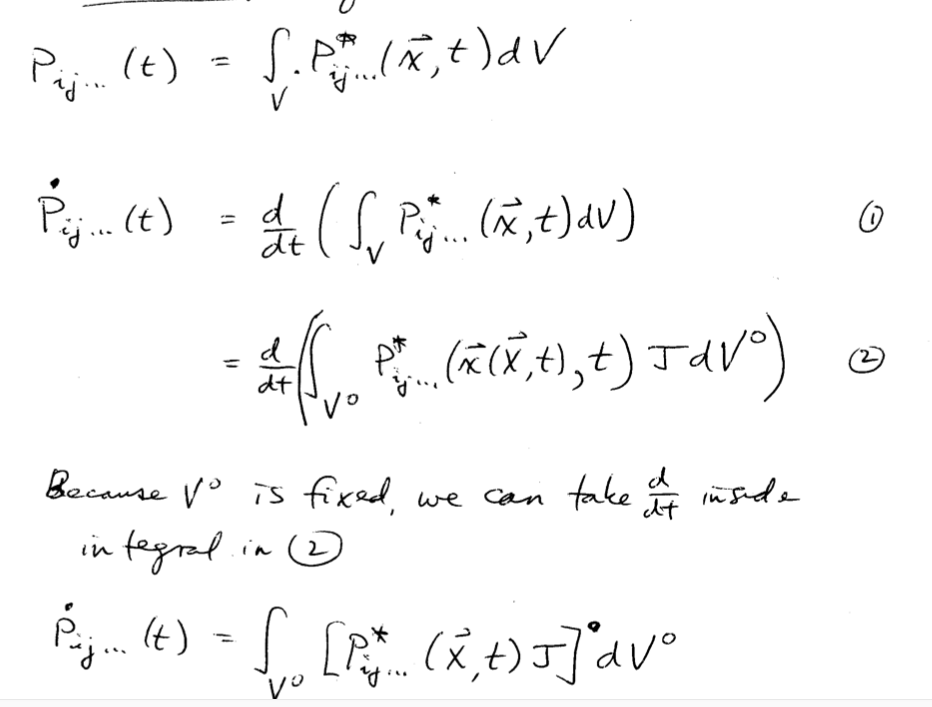 P_{ij...}(t) = ∫_V P*_{ij...}(x⃗,t)dV
Ṗ_{ij...}(t) = d/dt (∫_V P*_{ij...}(x⃗,t)dV) ①
= d/dt (∫_{V⁰} P*_{ij...}(x⃗(X⃗,t),t) J dV⁰) ②
Because V⁰ is fixed, we can take d/dt inside
integral in ②
Ṗ_{ij...}(t) = ∫_{V⁰} [P*_{ij...}(x⃗,t)J]˙ dV⁰